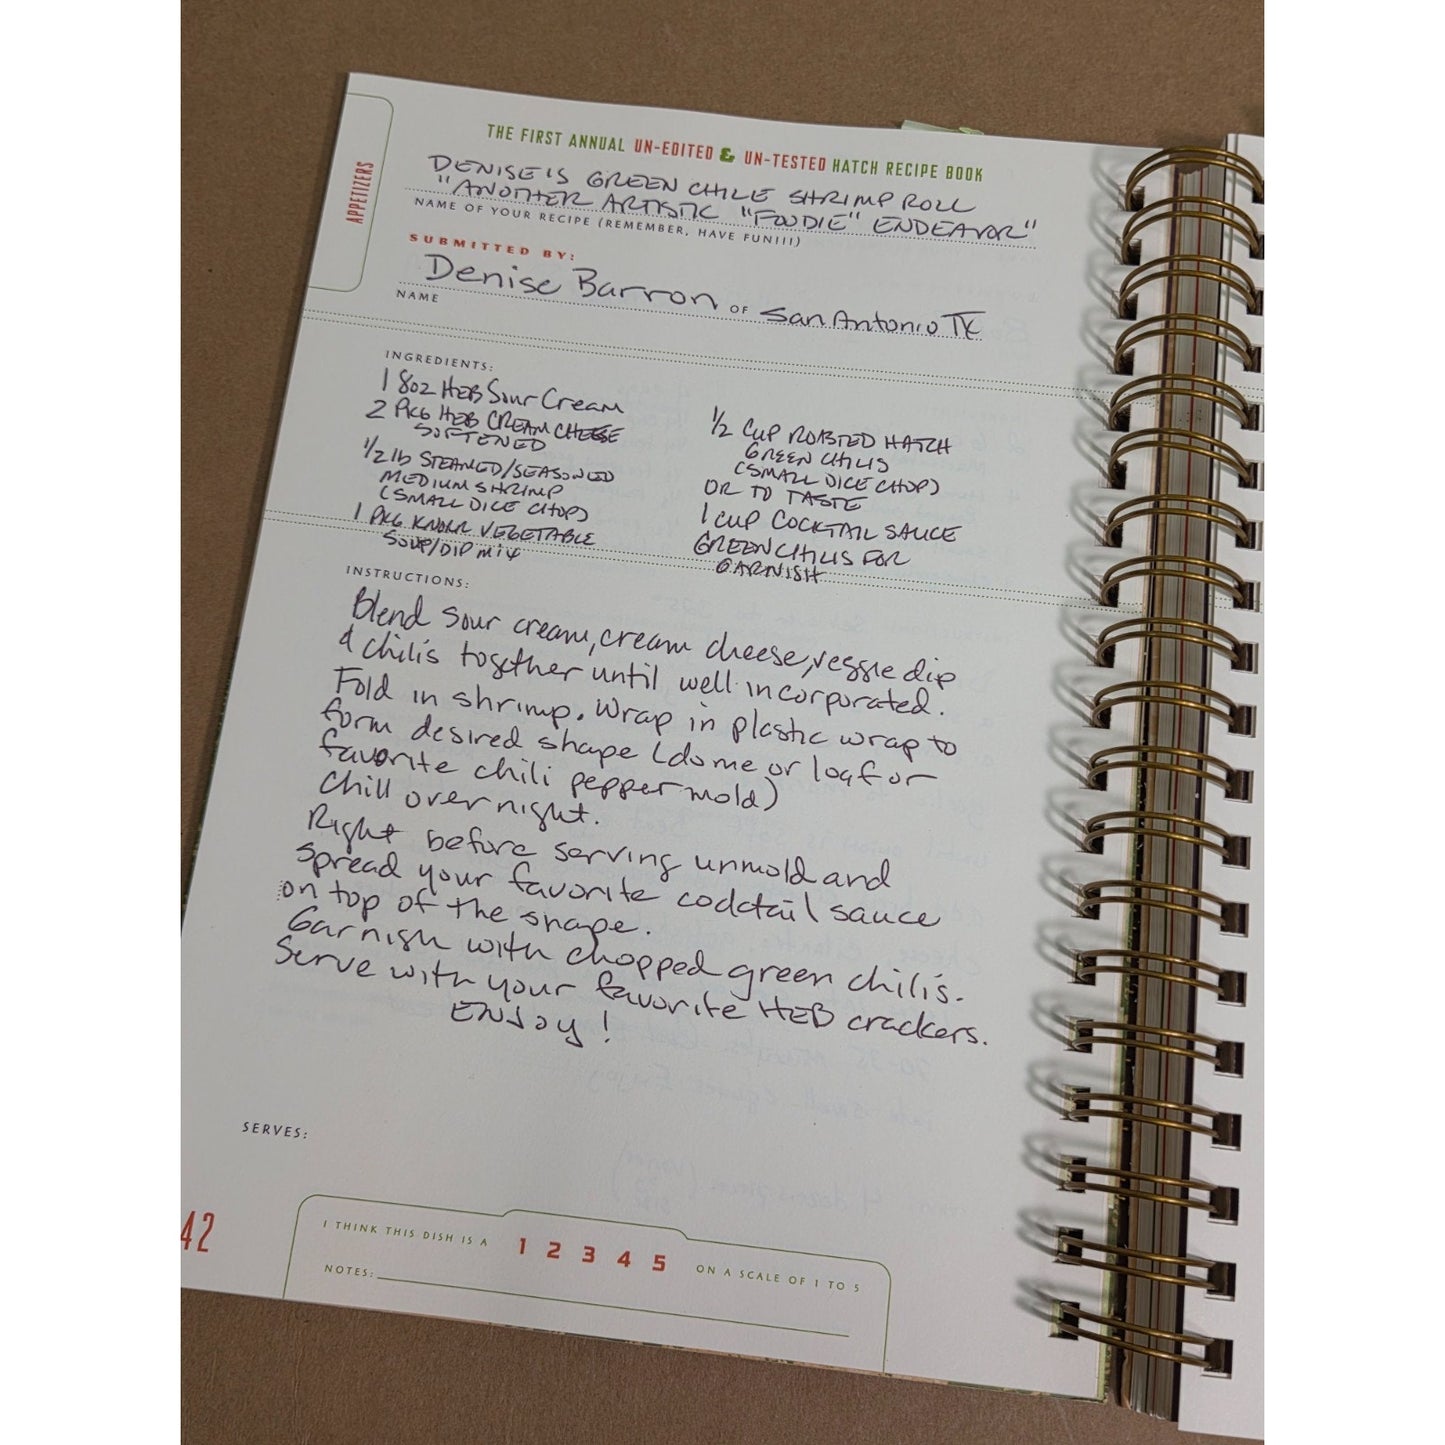 THE FIRST ANNUAL UN-EDITED & UN-TESTED HATCH RECIPE BOOK
APPETIZERS
DENISE'S GREEN CHILE SHRIMP ROLL
"ANOTHER ARTISTIC "FOODIE" ENDEAVOR"
NAME OF YOUR RECIPE (REMEMBER, HAVE FUN!!!)
SUBMITTED BY:
Denise Barron OF San Antonio TX
NAME
INGREDIENTS:
1 8oz HEB Sour Cream
2 PKG HEB CREAM CHEESE
SOFTENED
1/2 lb STEAMED/SEASONED
MEDIUM SHRIMP
(SMALL DICE CHOP)
1 PKG KNORR VEGETABLE
SOUP/DIP MIX
1/2 CUP ROASTED HATCH
GREEN CHILIS
(SMALL DICE CHOP)
OR TO TASTE
1 CUP COCKTAIL SAUCE
GREEN CHILIS FOR
GARNISH
INSTRUCTIONS:
Blend sour cream, cream cheese, veggie dip
& chili's together until well incorporated.
Fold in shrimp. Wrap in plastic wrap to
form desired shape (dome or loaf or
favorite chili pepper mold)
Chill over night.
Right before serving unmold and
spread your favorite cocktail sauce
on top of the shape.
Garnish with chopped green chili's.
Serve with your favorite HEB crackers.
ENJOY!
SERVES:
42
I THINK THIS DISH IS A 1 2 3 4 5 ON A SCALE OF 1 TO 5
NOTES: